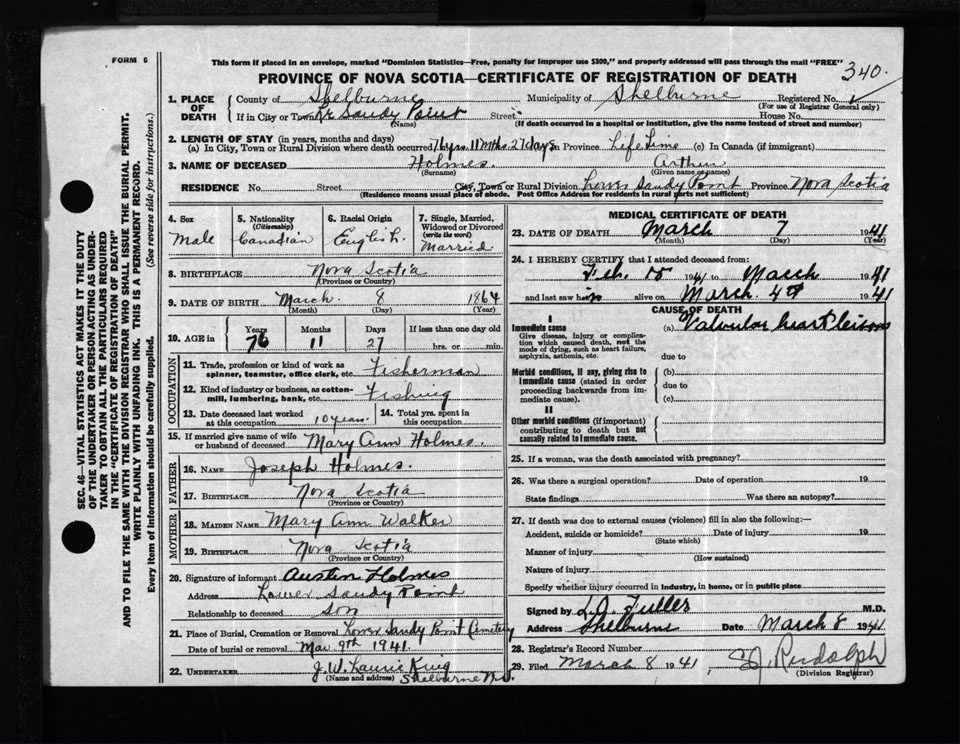 FORM 6
This form if placed in an envelope, marked "Dominion Statistics—Free, penalty for improper use $300," and properly addressed will pass through the mail "FREE"
PROVINCE OF NOVA SCOTIA—CERTIFICATE OF REGISTRATION OF DEATH
340.
1. PLACE OF DEATH
County of Shelburne Municipality of Shelburne Registered No.
(For use of Registrar General only)
If in City or Town Nr Sandy Point Street House No.
(Name) (If death occurred in a hospital or institution, give the name instead of street and number)
2. LENGTH OF STAY (in years, months and days)
(a) In City, Town or Rural Division where death occurred 76yrs. 11mths. 27days In Province Life Time (c) In Canada (if immigrant)
3. NAME OF DECEASED Holmes. Arthur
(Surname) (Given name or names)
RESIDENCE No. Street City, Town or Rural Division Lower Sandy Point Province Nova Scotia
(Residence means usual place of abode. Post Office Address for residents in rural parts not sufficient)
4. Sex
Male
5. Nationality
(Citizenship)
Canadian
6. Racial Origin
English.
7. Single, Married, Widowed or Divorced
(write the word)
Married
8. BIRTHPLACE Nova Scotia
(Province or Country)
9. DATE OF BIRTH March. 8 1864
(Month) (Day) (Year)
10. AGE in
Years Months Days If less than one day old
76 11 27 hrs. or min.
OCCUPATION
11. Trade, profession or kind of work as spinner, teamster, office clerk, etc. Fisherman
12. Kind of industry or business, as cotton-mill, lumbering, bank, etc. Fishing
13. Date deceased last worked at this occupation 10 years.
14. Total yrs. spent in this occupation
15. If married give name of wife or husband of deceased Mary Ann Holmes.
FATHER
16. NAME Joseph Holmes.
17. BIRTHPLACE Nova Scotia
(Province or Country)
MOTHER
18. MAIDEN NAME Mary Ann Walker
19. BIRTHPLACE Nova Scotia
(Province or Country)
20. Signature of informant Austin Holmes
Address Lower Sandy Point
Relationship to deceased Son
21. Place of Burial, Cremation or Removal Lower Sandy Point Cemetery
Date of burial or removal Mar 9th 1941.
22. UNDERTAKER J.W. Laurie King
(Name and address) Shelburne N.S.
MEDICAL CERTIFICATE OF DEATH
23. DATE OF DEATH March 7 1941
(Month) (Day) (Year)
24. I HEREBY CERTIFY that I attended deceased from:
Feb. 1941 to March 1941
and last saw him alive on March. 4th 1941
CAUSE OF DEATH
I
Immediate cause
Give disease, injury or complication which caused death, not the mode of dying, such as heart failure, asphyxia, asthenia, etc.
(a) Valvular heart
due to
Morbid conditions, if any, giving rise to immediate cause (stated in order proceeding backwards from immediate cause).
(b)
due to
(c)
II
Other morbid conditions (if important) contributing to death but not causally related to immediate cause.
25. If a woman, was the death associated with pregnancy?
26. Was there a surgical operation? Date of operation 19
State findings Was there an autopsy?
27. If death was due to external causes (violence) fill in also the following:—
Accident, suicide or homicide? Date of injury 19
(State which)
Manner of injury
(How sustained)
Nature of injury
Specify whether injury occurred in industry, in home, or in public place
Signed by L.O. Fuller M.D.
Address Shelburne Date March 8 1941
28. Registrar's Record Number
29. Filed March 8 1941 Rudolph
(Division Registrar)
SEC. 46—VITAL STATISTICS ACT MAKES IT THE DUTY
OF THE UNDERTAKER OR PERSON ACTING AS UNDER-
TAKER TO OBTAIN ALL THE PARTICULARS REQUIRED
IN THE "CERTIFICATE OF REGISTRATION OF DEATH"
AND TO FILE THE SAME WITH THE DIVISION REGISTRAR WHO SHALL ISSUE THE BURIAL PERMIT.
WRITE PLAINLY WITH UNFADING INK. THIS IS A PERMANENT RECORD.
Every item of information should be carefully supplied. (See reverse side for instructions.)